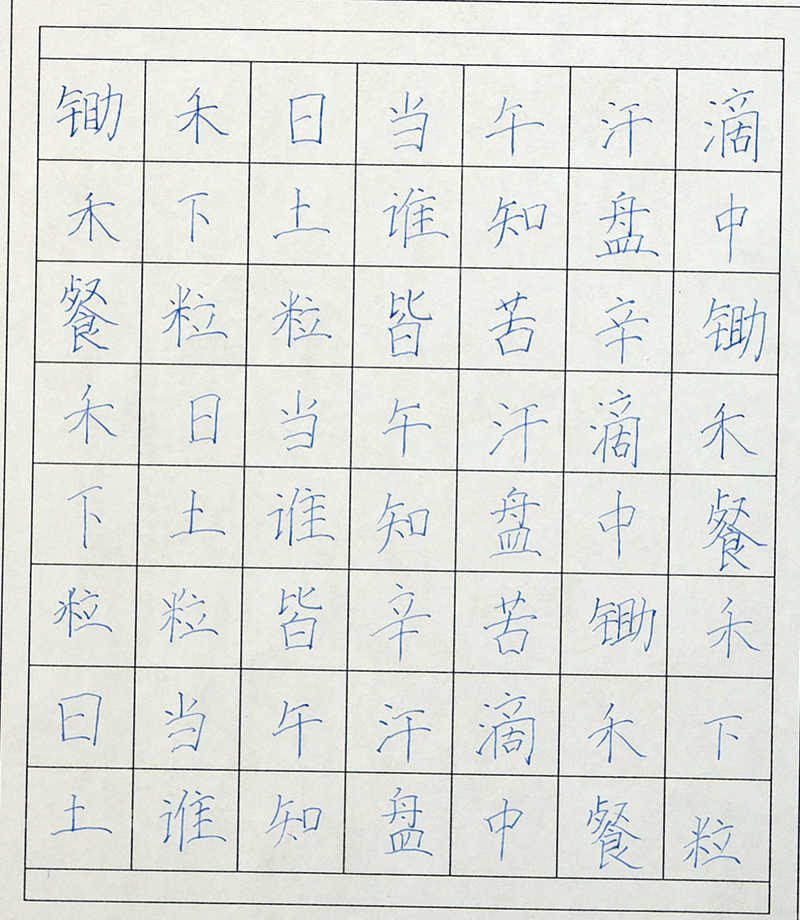 锄禾日当午汗滴
禾下土谁知盘中
餐粒粒皆苦辛锄
禾日当午汗滴禾
下土谁知盘中餐
粒粒皆辛苦锄禾
日当午汗滴禾下
土谁知盘中餐粒